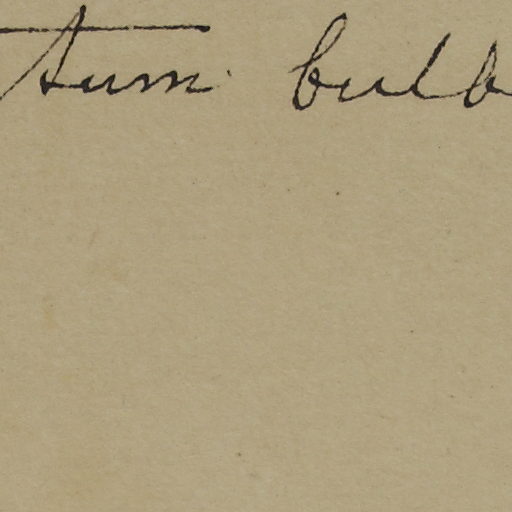 tum bulb